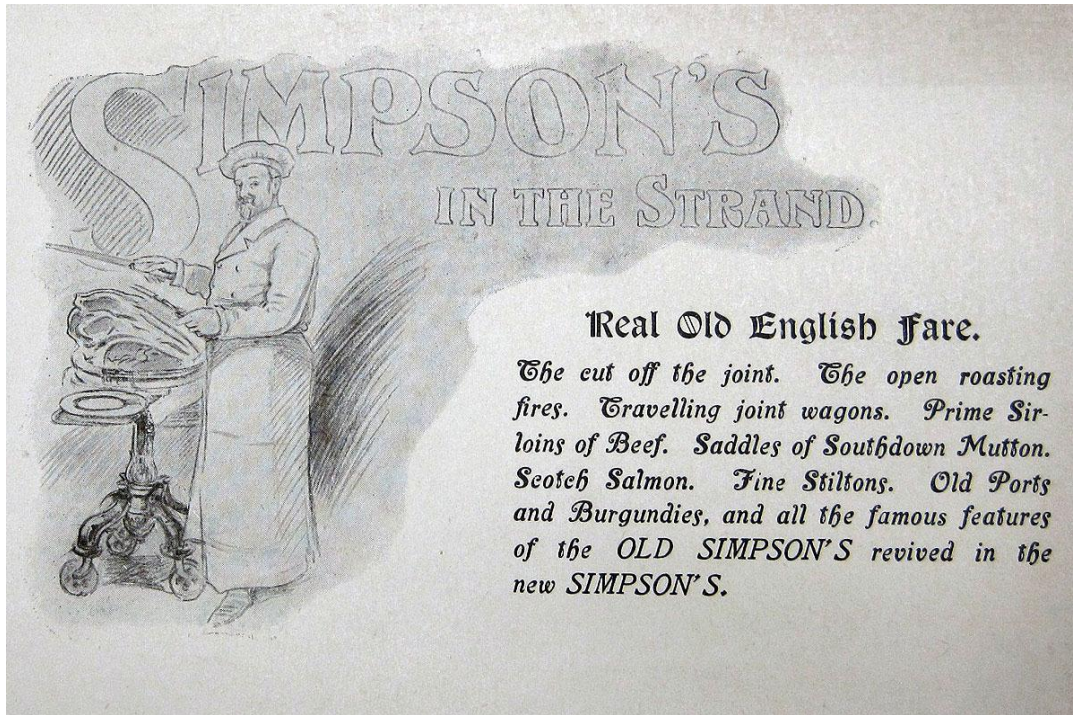 SIMPSON'S
IN THE STRAND.
Real Old English Fare.
The cut off the joint. The open roasting
fires. Travelling joint wagons. Prime Sir-
loins of Beef. Saddles of Southdown Mutton.
Scotch Salmon. Fine Stiltons. Old Ports
and Burgundies, and all the famous features
of the OLD SIMPSON'S revived in the
new SIMPSON'S.